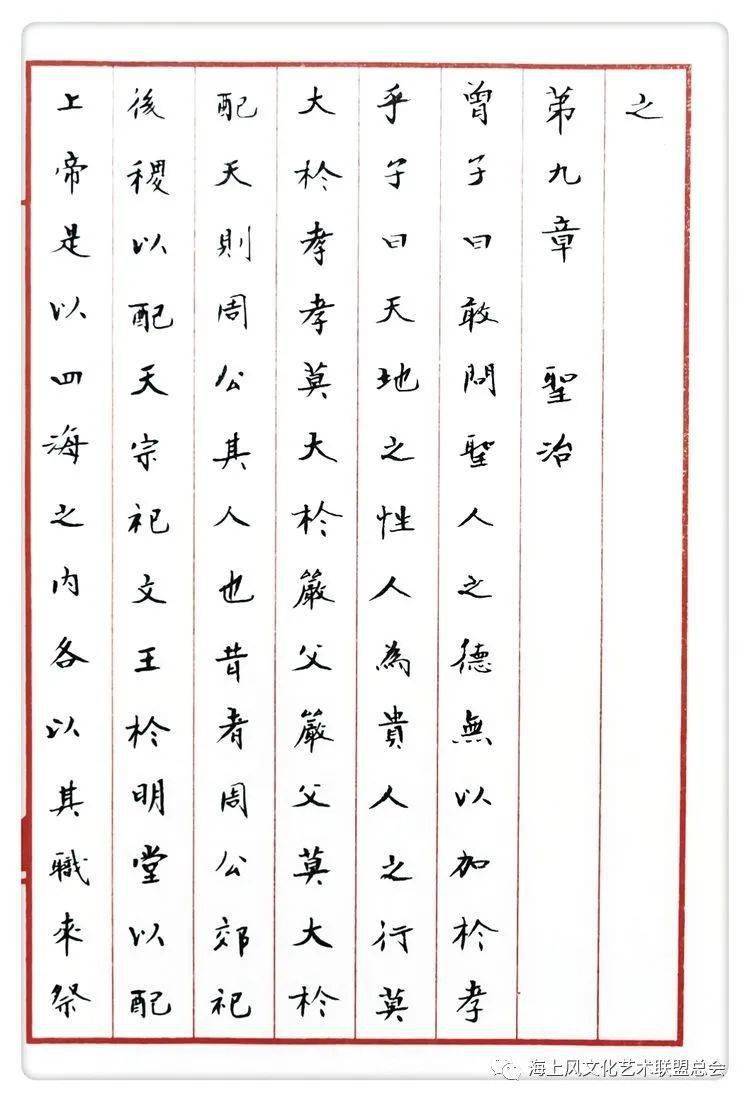 之
第九章 聖治
曾子曰敢問聖人之德無以加於孝
乎子曰天地之性人為貴人之行莫
大於孝孝莫大於嚴父嚴父莫大於
配天則周公其人也昔者周公郊祀
後稷以配天宗祀文王於明堂以配
上帝是以四海之内各以其職來祭
海上风文化艺术联盟总会